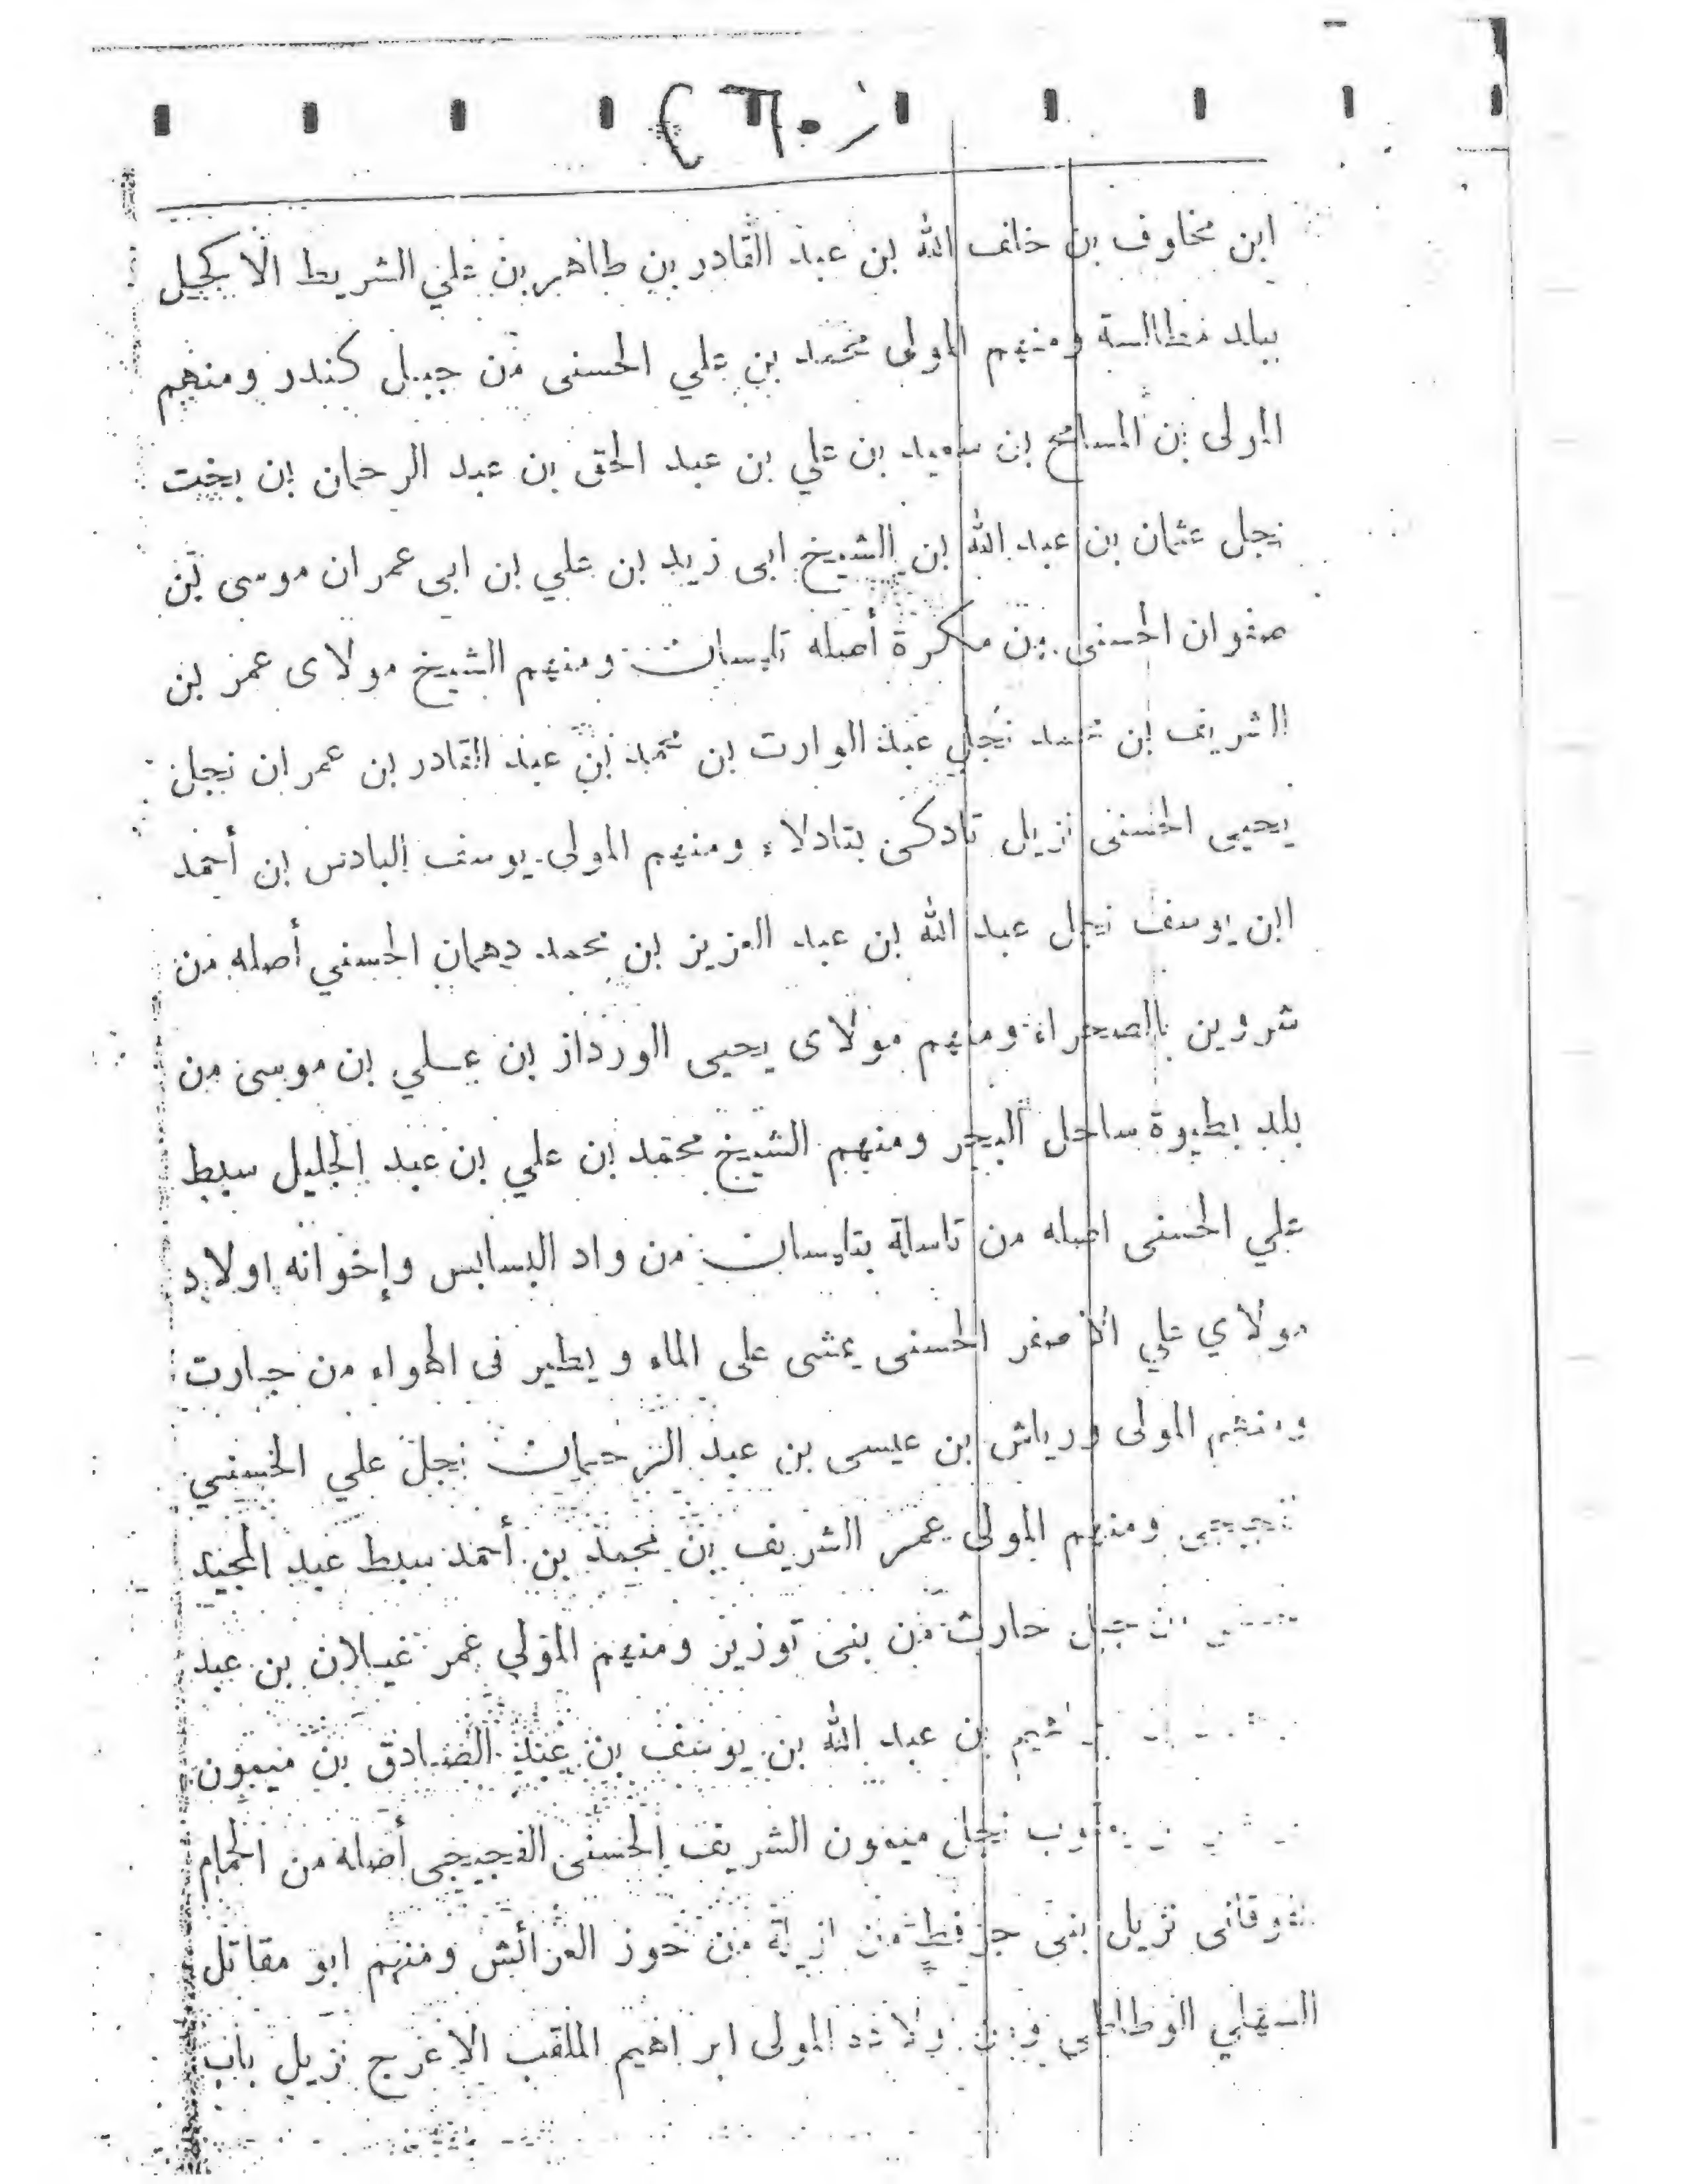 ابن مخلوف بن خلف الله بن عبد القادر بن طاهر بن علي الشريط الاكحيل
ببلد مطالسة ومنهم المولى محمد بن علي الحسنى من جبل كندر ومنهم
المولى بن المسامح بن سعيد بن علي بن عبد الحق بن عبد الرحمان بن بخت
نجل عثمان بن عبد الله بن الشيخ ابى زيد بن علي بن ابى عمران موسى بن
صفوان الحسنى من مكرة أصله تلمسان ومنهم الشيخ مولاى عمر بن
الشريف بن محمد نجل عبد الوارت بن محمد بن عبد القادر بن عمران نجل
يحيى الحسنى نزيل تادكى بتادلاء ومنهم المولى يوسف البادس بن أحمد
ابن يوسف نجل عبد الله بن عبد العزيز بن محمد دهمان الحسني أصله من
شروين بالصحراء ومنهم مولاى يحيى الورداز بن عسلي بن موسى من
بلد بطيوة ساحل البحر ومنهم الشيخ محمد بن علي بن عبد الجليل سبط
علي الحسنى اصله من تاسالة بتلمسان من واد البسابس وإخوانه اولاد
مولاي علي الاصغر الحسنى يمشى على الماء و يطير فى الهواء من جارت
ومنهم المولى ورياش بن عيسى بن عبد الرحمان نجل علي الحسني
ومنهم المولى عمر الشريف بن محمد بن أحمد سبط عبد المجيد
جبل حارث من بنى توزير ومنهم المولى عمر غيلان بن عبد
بن عبد الله بن يوسف بن عبد الصادق بن ميمون
نجل ميمون الشريف الحسنى الفجيجى أصله من الحمام
الفوقانى نزيل بنى جرفط من حوز العرائش ومنهم ابو مقاتل
السفلي الوطاطي ومن ولاده المولى ابراهيم الملقب الاعرج نزيل باب